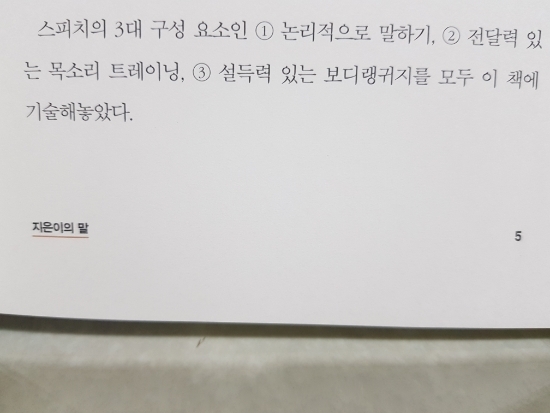 스피치의 3대 구성 요소인 ① 논리적으로 말하기, ② 전달력 있
는 목소리 트레이닝, ③ 설득력 있는 보디랭귀지를 모두 이 책에
기술해놓았다.
지은이의 말
5